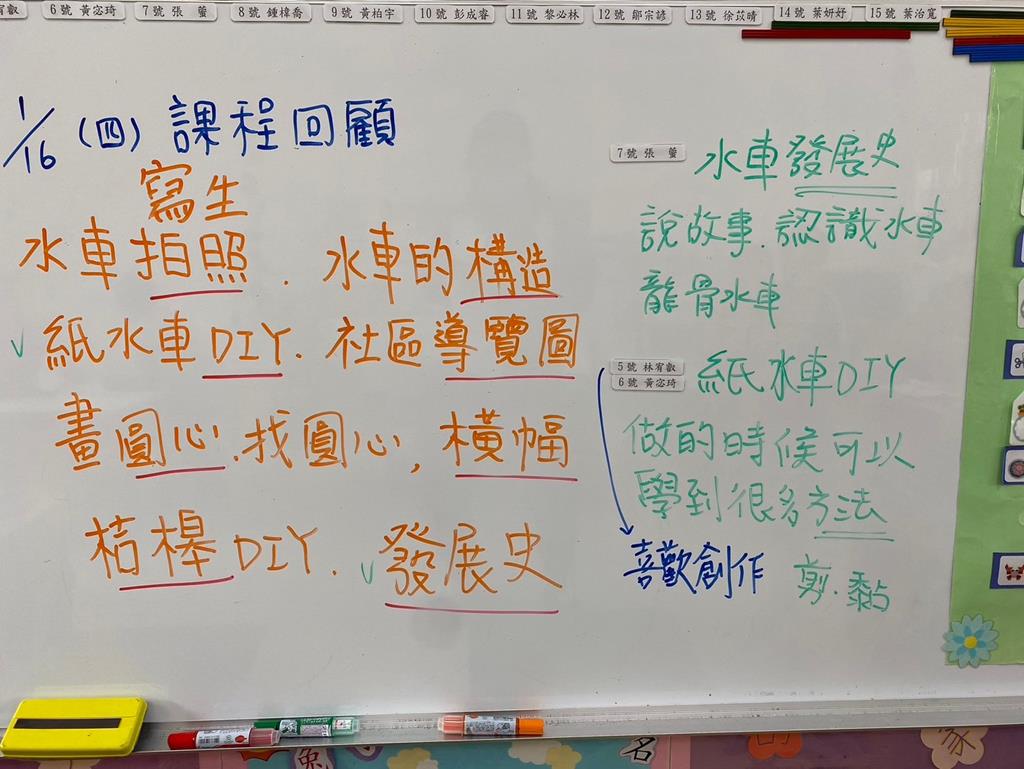 宥叡
6號 黃宓琦
7號 張 螢
8號 鍾樟喬
9號 黃柏宇
10號 彭成睿
11號 黎必林
12號 鄒宗諺
13號 徐苡晴
14號 葉妍妤
15號 葉治寬
1/16 (四) 課程回顧
寫生
水車拍照. 水車的構造
✓ 紙水車DIY. 社區導覽圖
畫圓心.找圓心, 橫幅
桔槔DIY. ✓ 發展史
7號 張 螢
水車發展史
說故事.認識水車
龍骨水車
5號 林宥叡
6號 黃宓琦
紙水車DIY
做的時候可以
學到很多方法
喜歡創作 剪.黏
兔
名
的
家